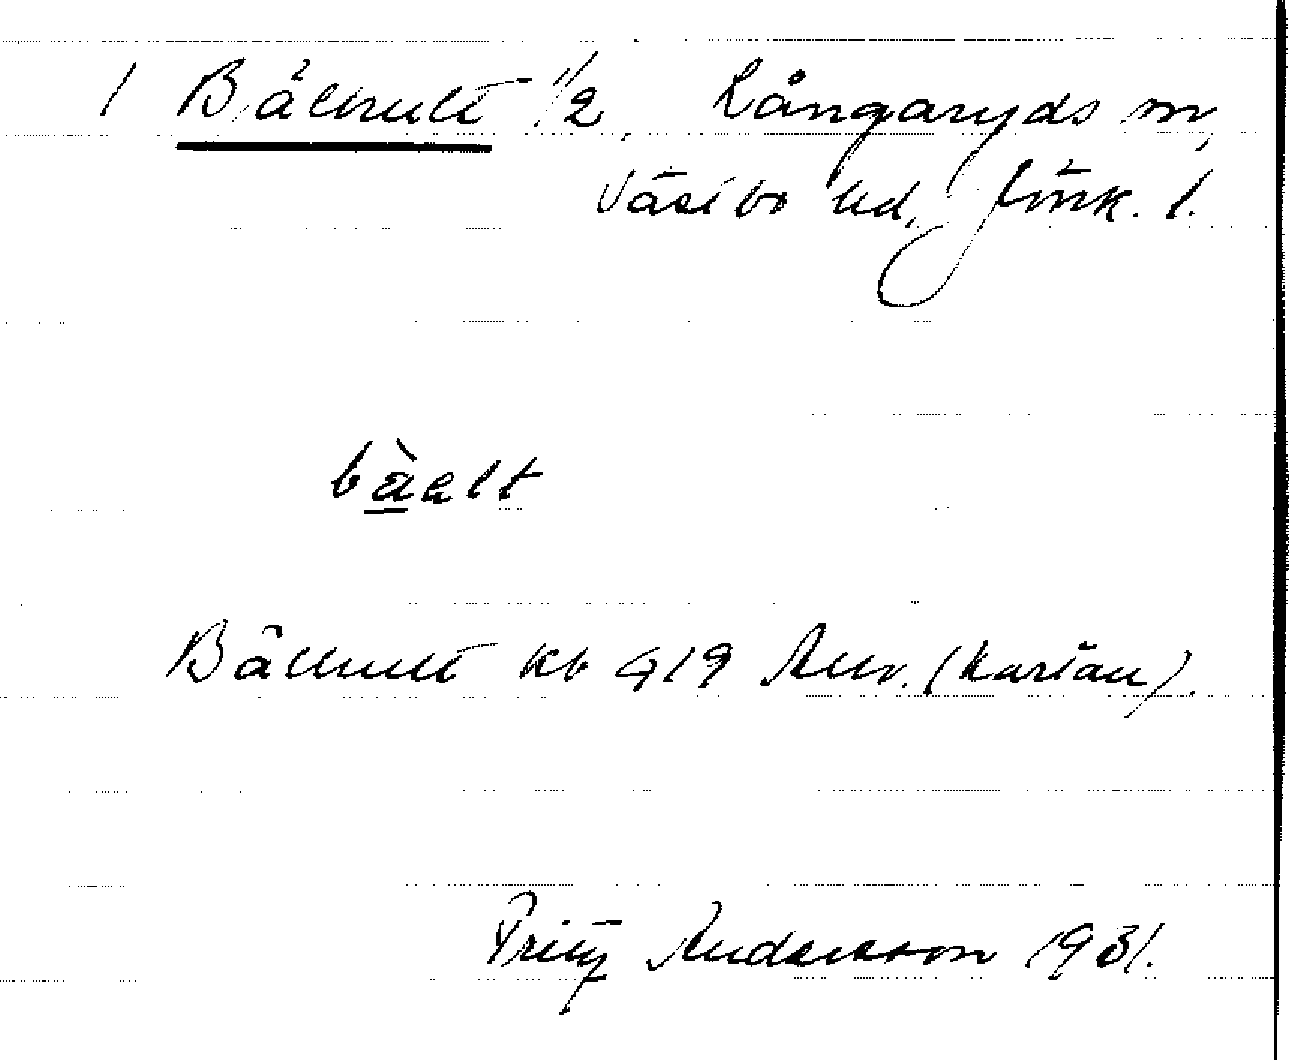 1 Bälhult 1/2, Långaryds sn,
Västbo hd, Jönk. l.
bàelt
Bälhult kb 419 Anv. (kartan).
Fritz Andersson 1931.